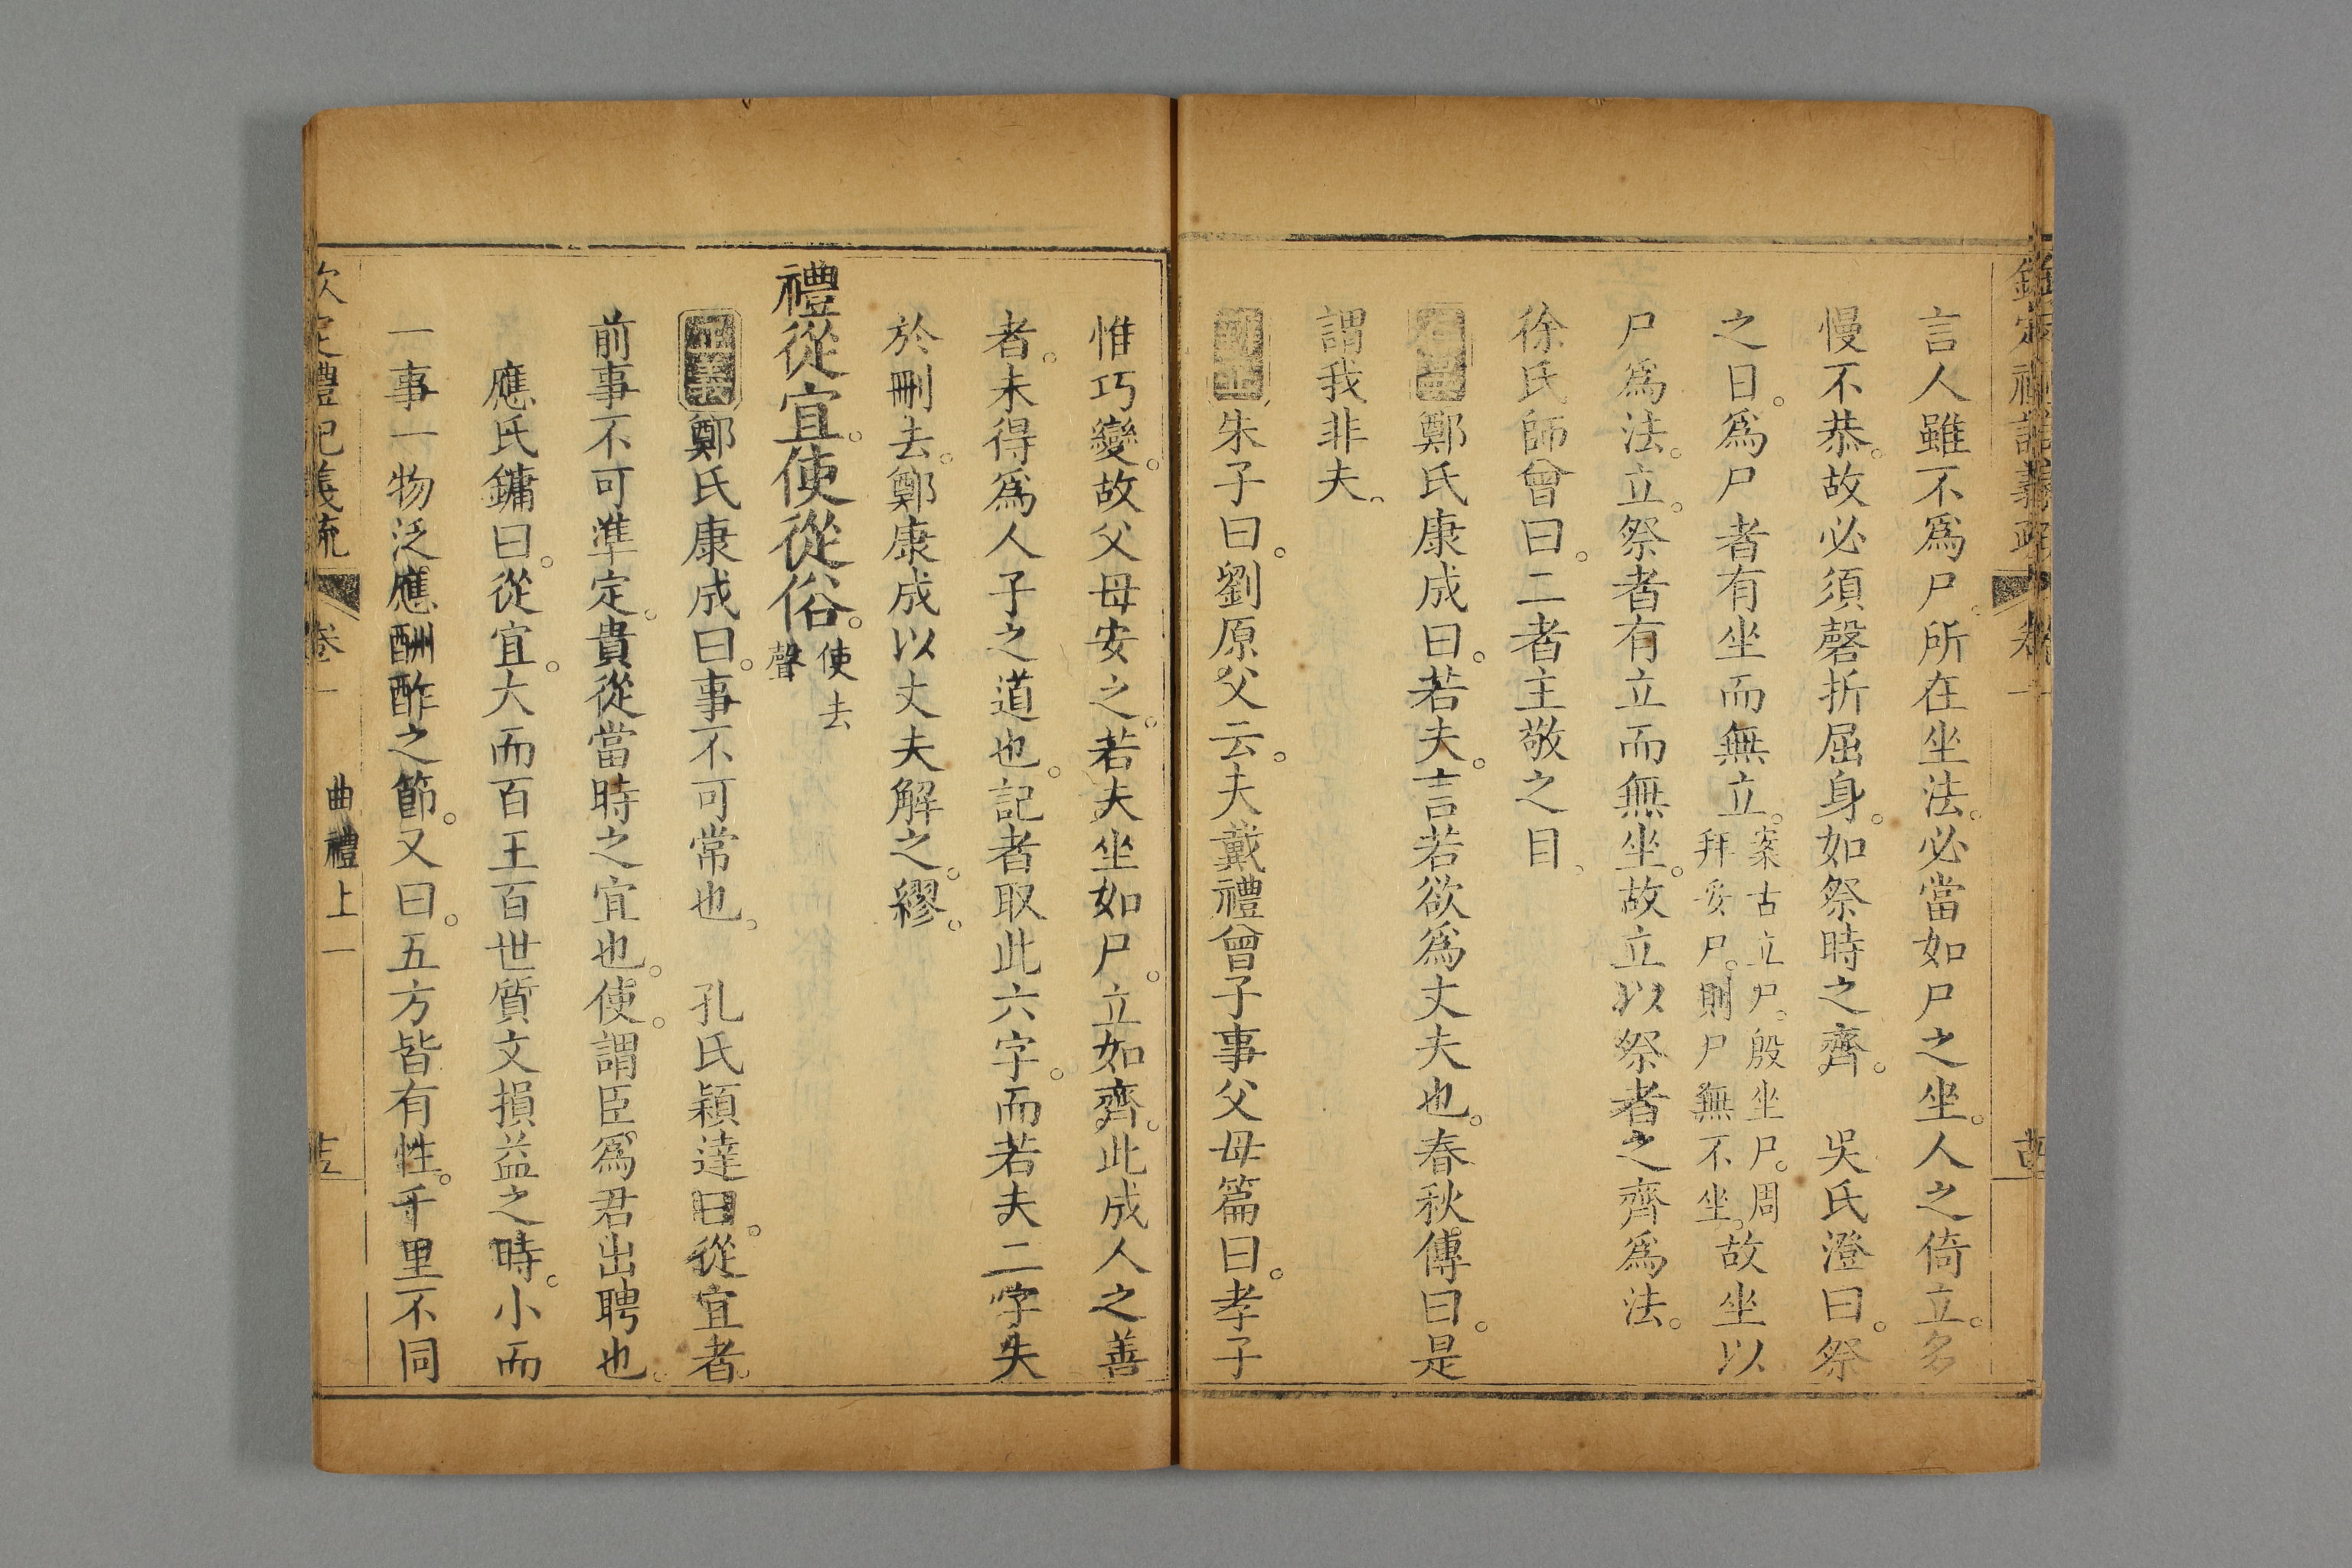 言人雖不爲尸。所在坐法。必當如尸之坐。人之倚立。多
慢不恭。故必須磬折屈身。如祭時之齊。 吳氏澄曰。祭
之日。爲尸者有坐而無立。案古立尸。殷坐尸。周拜妥尸。則尸無不坐。故坐以
尸爲法。立。祭者有立而無坐。故立以祭者之齊爲法。
徐氏師曾曰。二者主敬之目、
鄭氏康成曰。若夫。言若欲爲丈夫也。春秋傳曰。是
謂我非夫。
朱子曰。劉原父云。夫戴禮曾子事父母篇曰。孝子
惟巧變。故父母安之。若夫坐如尸。立如齊。此成人之善
者。未得爲人子之道也。記者取此六字。而若夫二字失
於刪去。鄭康成以丈夫解之。繆。
禮從宜。使從俗。使去聲
正義鄭氏康成曰。事不可常也。 孔氏穎達曰。從宜者。
前事不可準定。貴從當時之宜也。使。謂臣爲君出聘也。
應氏鏞曰。從宜。大而百王百世質文損益之時。小而
一事一物泛應酬酢之節。又曰。五方皆有性。千里不同
欽定禮記義疏 卷一 曲禮上一